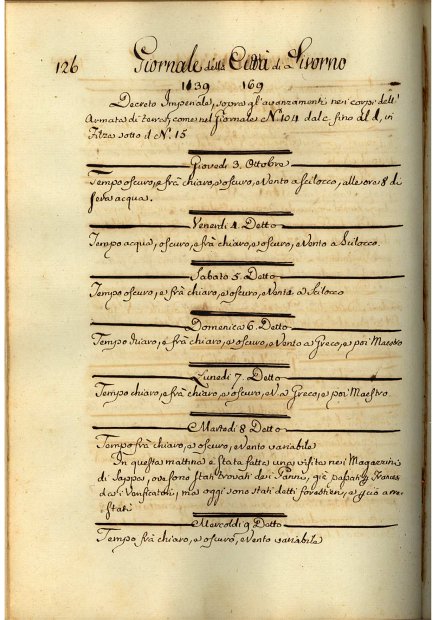 126 Giornale della Città di Livorno
1139 169
Decreto Imperiale, sopra gl'avanzamenti nei corpi dell'
Armata di terra, come nel Giornale N. 104 dal c. fino al d, in
Filza sotto d N. 15
Giovedì 3. Ottobre
Tempo oscuro, e frà chiaro, e oscuro, e Vento a Scilocco, alle ore 8 di
sera acqua.
Venerdì 4. Detto
Tempo acqua, oscuro, e frà chiaro, e oscuro, e Vento a Scilocco.
Sabato 5. Detto
Tempo oscuro, e frà chiaro, e oscuro, e Vento a Scilocco
Domenica 6. Detto
Tempo chiaro, e frà chiaro, e oscuro, e Vento a Greco, e poi Maestro
Lunedì 7. Detto
Tempo chiaro, e frà chiaro, e oscuro, e V. a Greco, e poi Maestro
Martedì 8 Detto
Tempo frà chiaro, e oscuro, e Vento variabile
In questa mattina è stata fatta una visita nei Magazzini
di Sappa, ove sono stati trovati dei Panni, già passati
dai Verificatori, ma oggi sono stati detti forestieri, e perciò arre-
stati
Mercoldì 9 Detto
Tempo frà chiaro, e oscuro, e Vento variabile